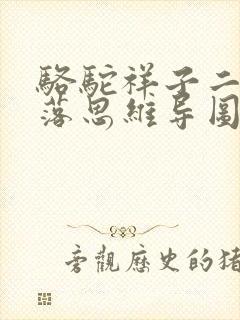 駱駝祥子二
落思維导圖
旁觀歷史的猪